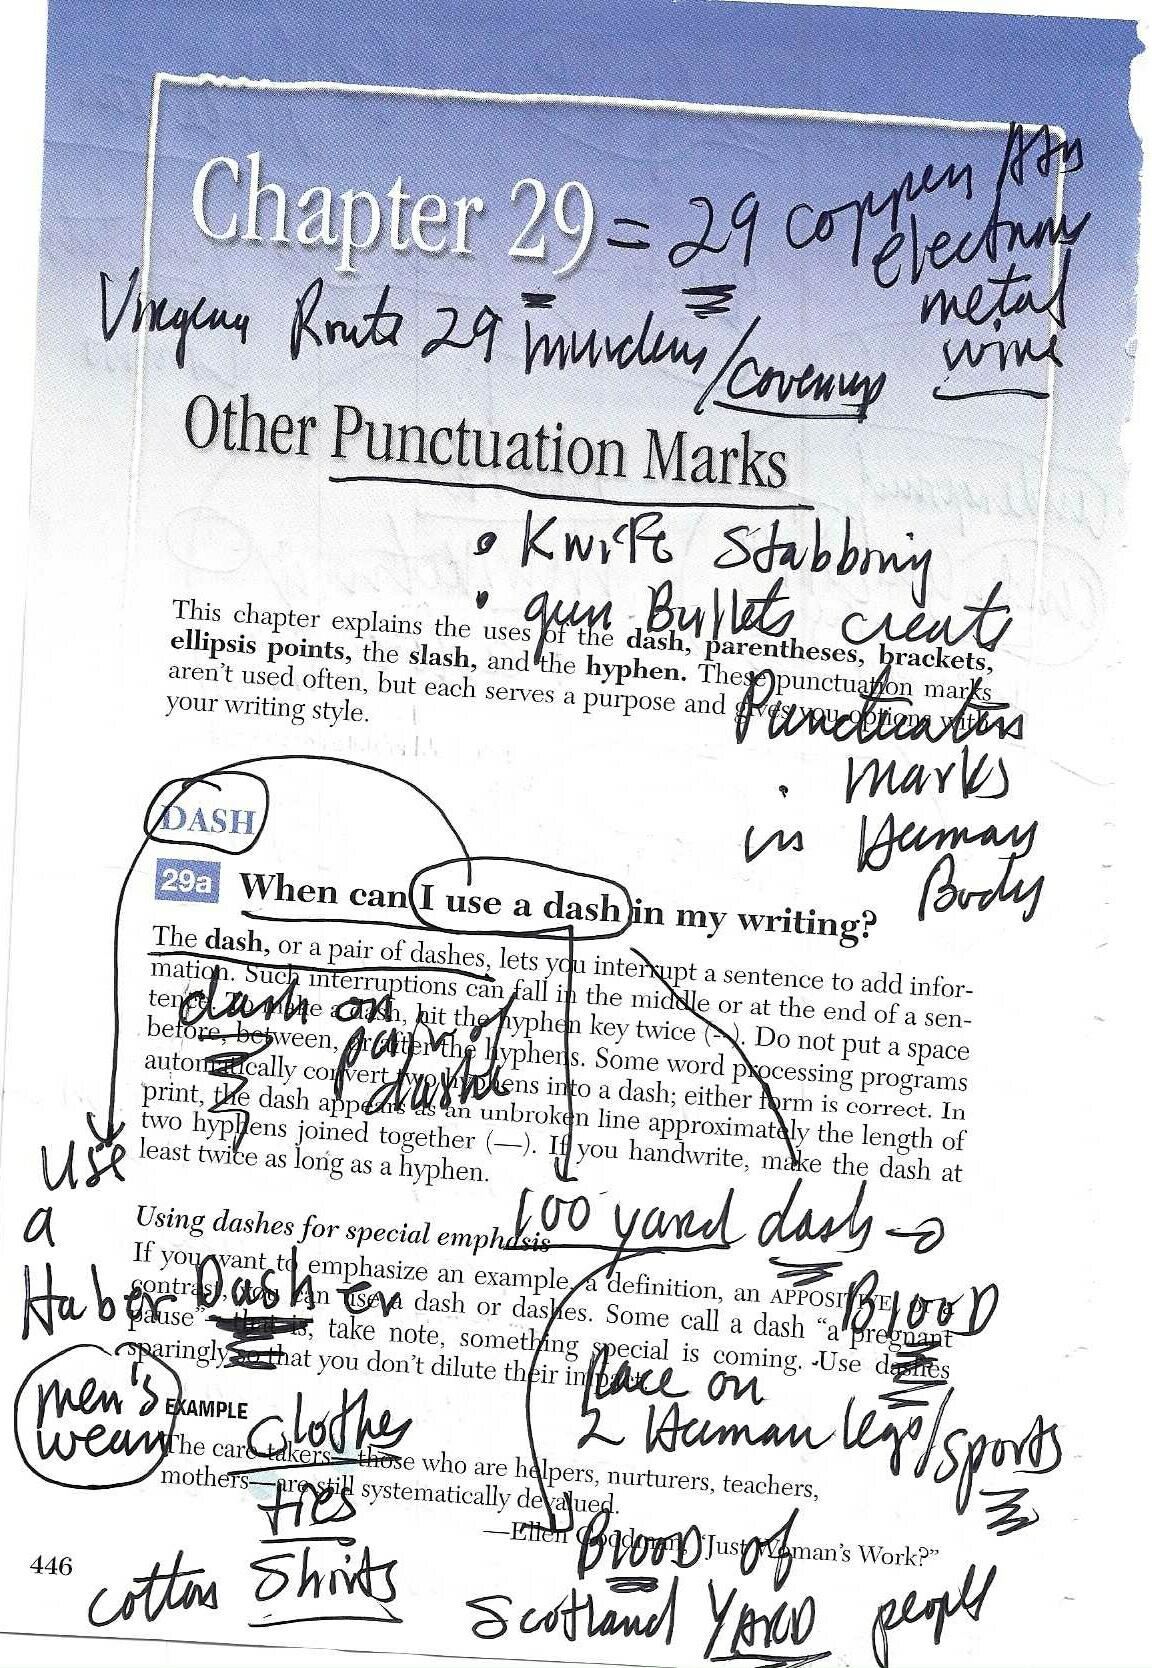 Chapter 29 = 29 copper
electrons
metal
wire
Virginia Route 29 murders/coverup
Other Punctuation Marks
• Knife Stabbing
• gun Bullets create
Punctuation
marks
in Human
Body
This chapter explains the uses of the dash, parentheses, brackets,
ellipsis points, the slash, and the hyphen. These punctuation marks
aren't used often, but each serves a purpose and gives you options with
your writing style.
DASH
29a When can I use a dash in my writing?
The dash, or a pair of dashes, lets you interrupt a sentence to add infor-
mation. Such interruptions can fall in the middle or at the end of a sen-
tence. To make a dash, hit the hyphen key twice (--). Do not put a space
before, between, or after the hyphens. Some word processing programs
automatically convert two hyphens into a dash; either form is correct. In
print, the dash appears as an unbroken line approximately the length of
two hyphens joined together (—). If you handwrite, make the dash at
least twice as long as a hyphen.
dash or
pair of
dashes
Use
a
Haber Dash er
men's
wear
clothes
ties
cotton Shirts
100 yard dash
Blood
Race on
2 Human legs/sports
Blood of
Scotland YARD people
Using dashes for special emphasis
If you want to emphasize an example, a definition, an APPOSITIVE, or a
contrast, you can use a dash or dashes. Some call a dash "a pregnant
pause"—that is, take note, something special is coming. Use dashes
sparingly so that you don't dilute their impact.
EXAMPLE
The care-takers—those who are helpers, nurturers, teachers,
mothers—are still systematically devalued.
—Ellen Goodman, "Just Woman's Work?"
446